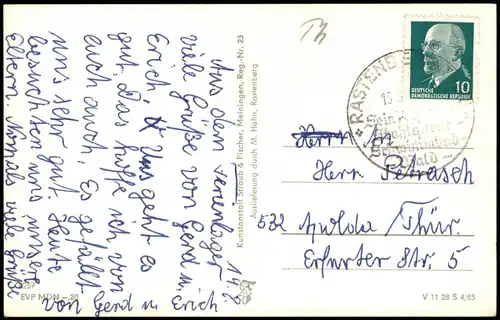 14.7.
Aus dem Ferienlager
viele Grüße von Gerd u.
Erich. Uns geht es
gut. Das hoffe ich von
euch auch. Es gefällt
uns sehr gut. Heute
besuchten uns unsere
Eltern. Nomals viele Grüße
von Gerd u. Erich
EVP MDN –,20
Kunstanstalt Straub & Fischer, Meiningen, Reg.-Nr. 23
Auslieferung durch M. Hahn, Rastenberg
Th
RASTENBERG
DEUTSCHE
DEMOKRATISCHE REPUBLIK
10
Herrn
Herrn Petrasch
532 Apolda Thür.
Erfurter Str. 5
V 11 28 S 4/65